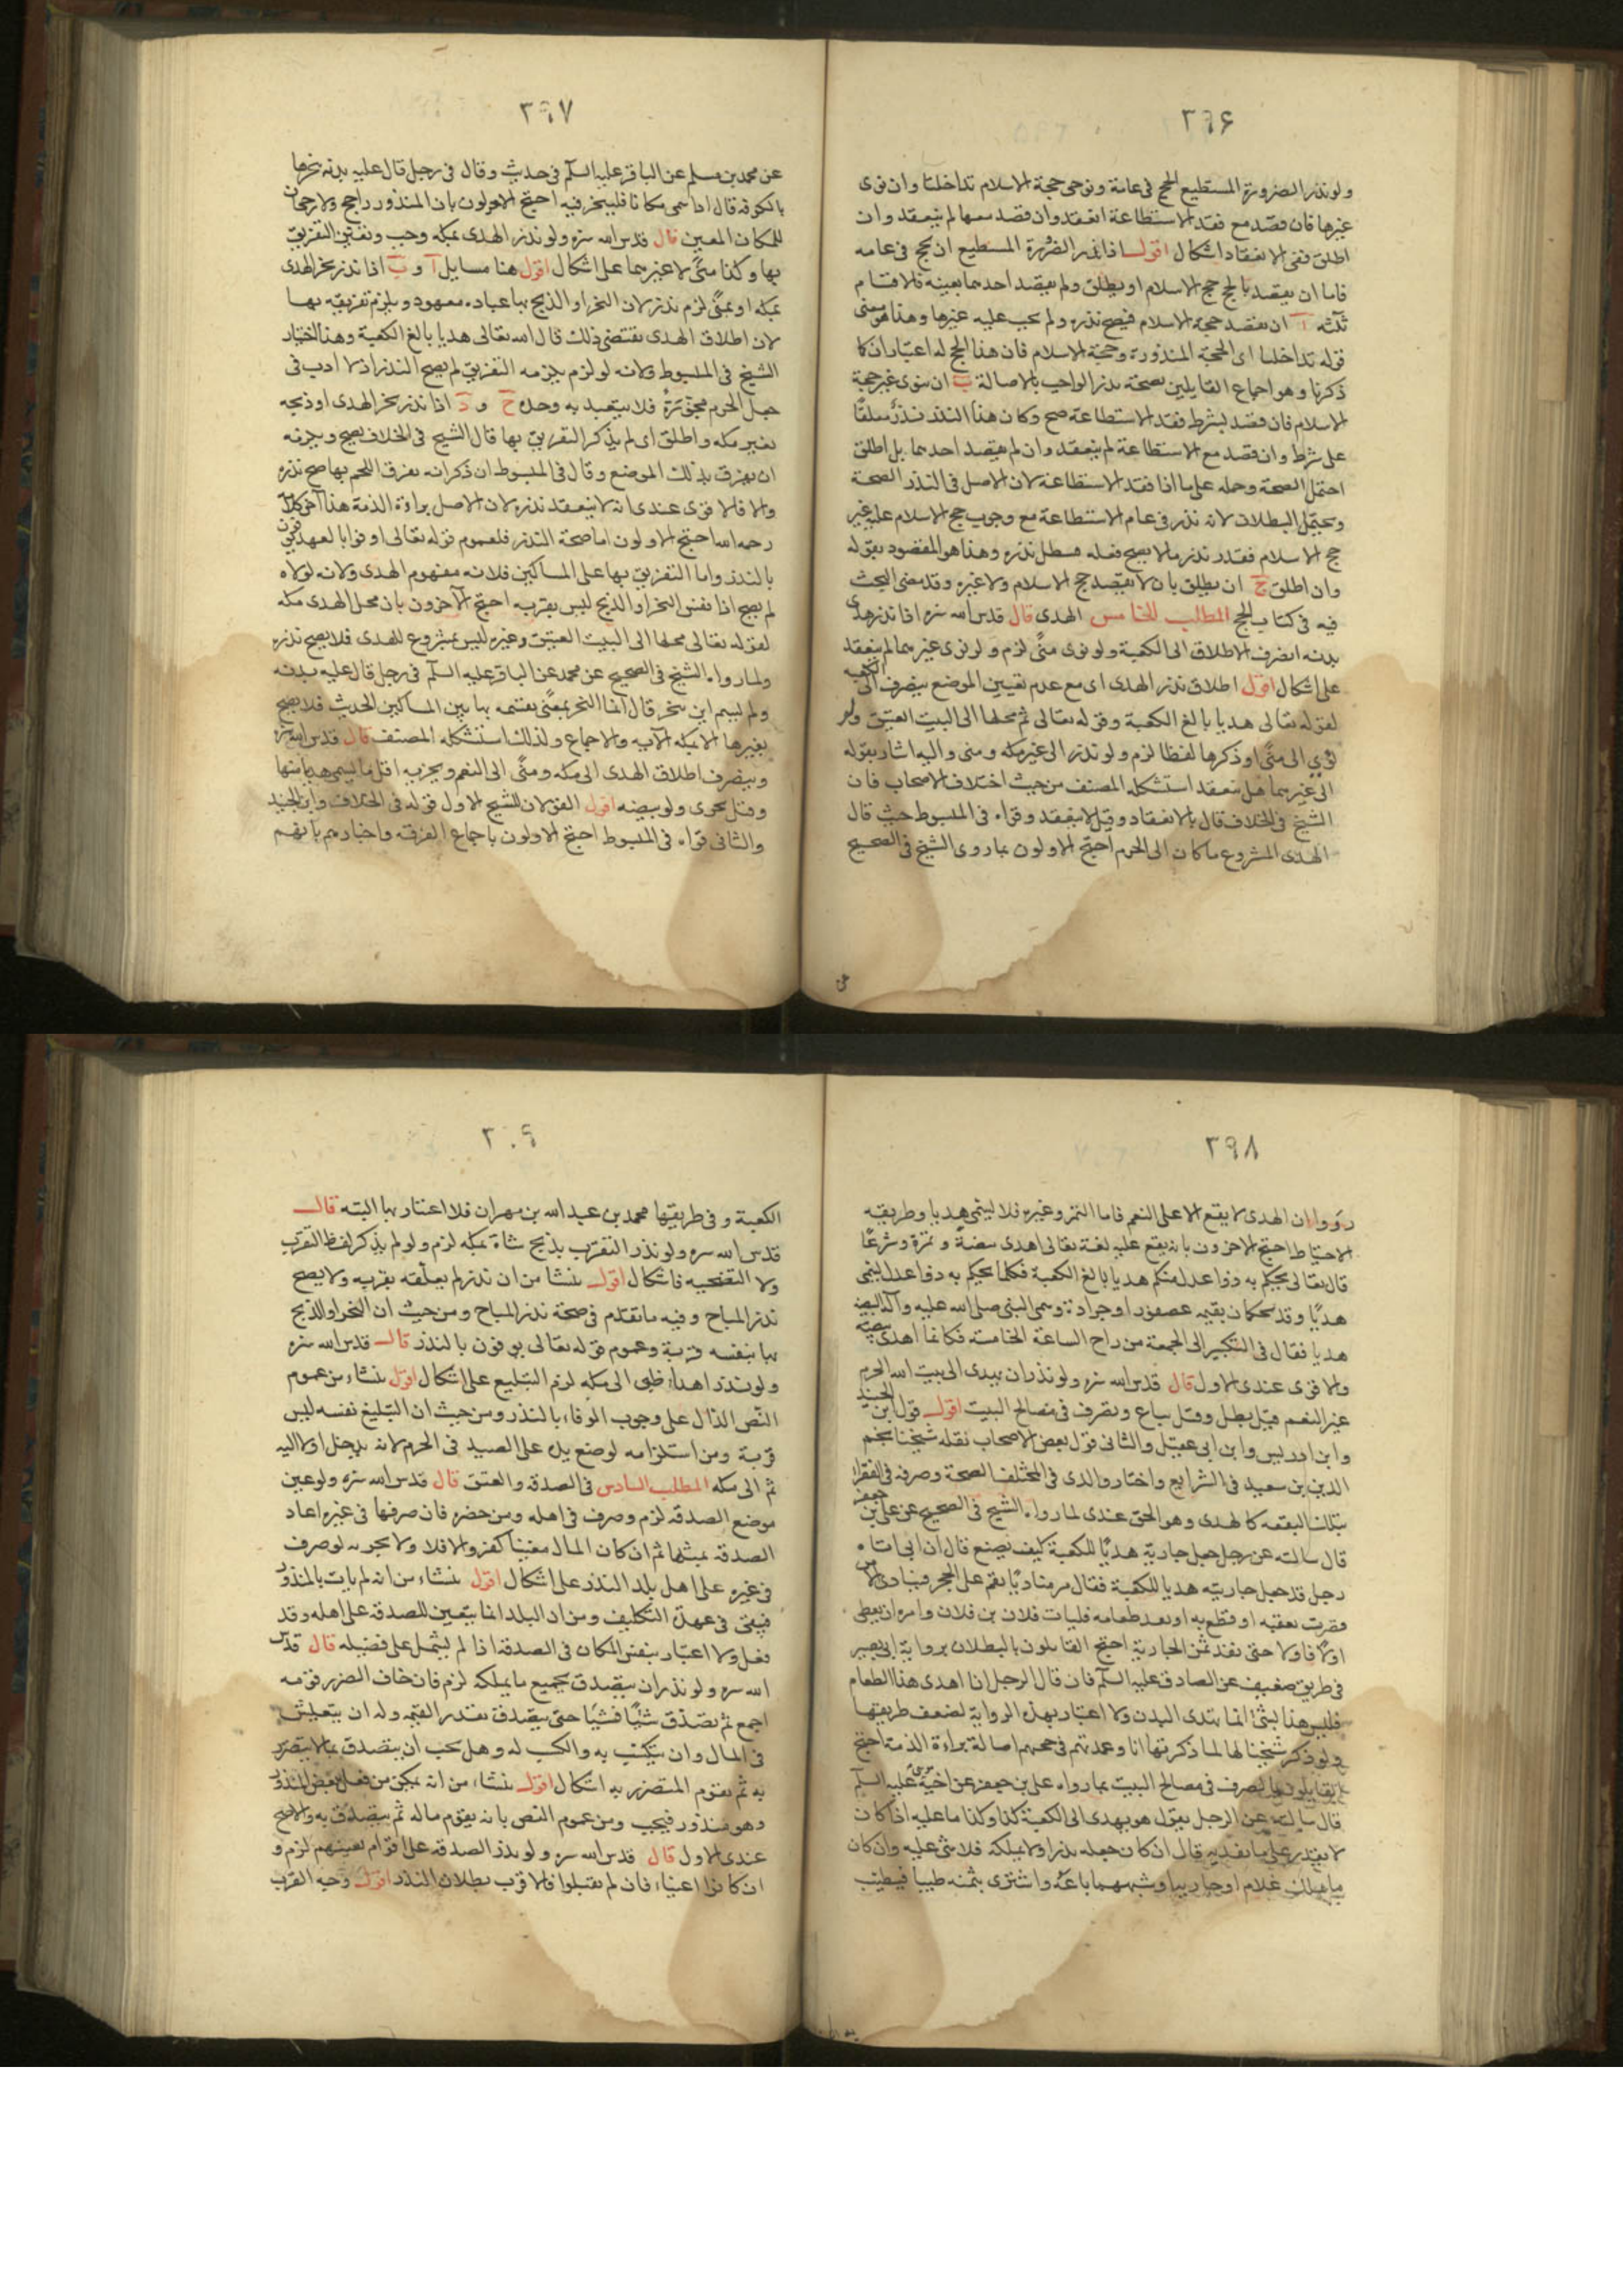 ٢٩۶
ولو نذر الصرورة المستطيع الحج في عامه ونوى حجة الاسلام تداخلتا وان نوى
غيرها فان قصد مع فقد الاستطاعة انعقد وان قصد معها لم ينعقد وان
اطلق ففى الانعقاد اشكال اقول اذا نذر الصرورة المستطيع ان يحج في عامه
فاما ان يقصد بالحج حج الاسلام او يطلق ولم يقصد احدهما بعينه فالاقسام
ثلثه آ ان يقصد حجة الاسلام فيصح نذره ولم يجب عليه غيرها وهذا هو معنى
قوله تداخلتا اى الحجة المنذورة وحجة الاسلام فان هذا الحج له اعتباران كما
ذكرنا وهو اجماع القايلين بصحة نذر الواجب بالاصالة ب ان ينوى غير حجة
الاسلام فان قصد بشرط فقد الاستطاعة صح وكان هذا النذر نذرا معلقا
على شرط وان قصد مع الاستطاعة لم ينعقد وان لم يقصد احدهما بل اطلق
احتمل الصحة وحمله على ما اذا فقد الاستطاعة لان الاصل في النذر الصحة
ويحتمل البطلان لانه نذر في عام الاستطاعة مع وجوب حج الاسلام عليه غير
حج الاسلام فقد نذر ما لا يصح فعله فبطل نذره وهذا هو المقصود بقوله
وان اطلق ج ان يطلق بان لا يقصد حج الاسلام ولا غيره وقد مضى البحث
فيه في كتاب الحج المطلب الخامس الهدى قال قدس الله سره اذا نذر هدى
بدنه انصرف الاطلاق الى الكعبة ولو نوى منًى لزم ولو نوى غيرهما لم ينعقد
على اشكال اقول اطلاق نذر الهدى اى مع عدم تعيين الموضع ينصرف الى الكعبه
لقوله تعالى هديا بالغ الكعبة وقوله تعالى ثم محلها الى البيت العتيق ولو
نوى الى منًى او ذكرها لفظا لزم ولو نذر الى غير مكه ومنى واليه اشار بقوله
الى غيرهما هل ينعقد استشكله المصنف من حيث اختلاف الاصحاب فان
الشيخ في الخلاف قال بالانعقاد وقيل لا ينعقد وقواه في المبسوط حيث قال
الهدى المشروع ما كان الى الحرم احتج الاولون بما روى الشيخ في الصحيح
٢٩٧
عن محمد بن مسلم عن الباقر عليه السلم في حديث وقال في رجل قال عليه بدنه ينحرها
بالكوفه قال اذا سمى مكانا فلينحر فيه احتج الاولون بان المنذور راجح ولا رجحان
للمكان المعين قال قدس الله سره ولو نذر الهدى بمكه وجب وتعين التفريق
بها وكذا منًى لا غيرهما على اشكال اقول هنا مسايل آ و ب اذا نذر نحر الهدى
بمكه او بمنًى لزم نذره لان النحر او الذبح بها عباده معهود ويلزم تفريقه بها
لان اطلاق الهدى يقتضى ذلك قال الله تعالى هديا بالغ الكعبة وهذا اختيار
الشيخ في المبسوط ولانه لو لزم يلزمه التفريق لم يصح النذر اذ لا ادب في
جعل الحرم مجزرة فلا يتعبد به وحده ج و د اذا نذر نحر الهدى او ذبحه
بغير مكه واطلق اى لم يذكر التفريق بها قال الشيخ في الخلاف يصح ويلزمه
ان يفرق بذلك الموضع وقال في المبسوط ان ذكر انه يفرق اللحم بها صح نذره
والا فالاقوى عندى انه لا ينعقد نذره لان الاصل براءة الذمة هذا آخر كلامه
رحمه الله احتج الاولون اما صحة النذر فلعموم قوله تعالى اوفوا بالعهد
بالنذر واما التفريق بها على المساكين فلانه مفهوم الهدى ولانه لولاه
لم يصح اذا نفس النحر او الذبح ليس بقربه احتج الآخرون بان محل الهدى مكه
لقوله تعالى محلها الى البيت العتيق وغيره ليس بمشروع للهدى فلا يصح نذره
ولما رواه الشيخ في الصحيح عن محمد عن الباقر عليه السلم في رجل قال عليه بدنه
ولم يسم اين ينحر قال انما النحر بمنًى يقسمه بها بين المساكين الحديث فلا يصح
بغيرها الا بمكه الآيه والاجماع ولذلك استشكله المصنف قال قدس الله سره
وينصرف اطلاق الهدى الى مكه ومنًى الى النعم ويجزيه اقل ما يسمى هديا منها
وقيل يجزى ولو بيضه اقول القولان للشيخ الاول قوله في الخلاف وابن الجنيد
والثانى قواه في المبسوط احتج الاولون باجماع الفرقه واخبارهم بانهم
٢٩٨
رووا ان الهدى لا يقع الا على النعم فاما التمر وغيره فلا يسمى هديا وطريقه
الاحتياط احتج الاخرون بانه يقع عليه لغة يقال اهدى بيضة وتمرة وشرعًا
قال تعالى يحكم به ذوا عدل منكم هديا بالغ الكعبة فكلما يحكم به ذوا عدل يسمى
هديًا وقد يحكمان بقيمه عصفور او جرادة وسمى النبى صلى الله عليه وآله البيضه
هديا فقال في التبكير الى الجمعة من راح الساعة الخامسة فكانما اهدى بيضة
والاقوى عندى الاول قال قدس الله سره ولو نذر ان يهدى الى بيت الله الحرم
غير النعم قيل يبطل وقيل يباع ويصرف في مصالح البيت اقول قول ابن الجنيد
وابن ادريس وابن ابى عقيل والثانى قول بعض الاصحاب نقله شيخنا نجم
الدين بن سعيد في الشرايع واختار والدى في المختلف الصحة وصرفه في الفقراء
بتلك البقعه كالهدى وهو الحق عندى لما رواه الشيخ في الصحيح عن على بن جعفر
قال سالته عن رجل جعل جارية هديًا للكعبة كيف يصنع قال ان ابى اتاه
رجل قد جعل جاريته هديا للكعبة فقال مر مناديًا يقم على الحجر فينادى الا من
قصرت نفقته او قطع به او نفد طعامه فليات فلان بن فلان وامره ان يعطى
اولًا فاولا حتى ينفد ثمن الجارية احتج القايلون بالبطلان برواية ابى بصير
في طريق ضعيف عن الصادق عليه السلم فان قال الرجل انا اهدى هذا الطعام
فليس هذا بشئ انما تهدى البدن ولا اعتبار بهذه الرواية لضعف طريقها
ولو ذكر شيخنا لها لما ذكرتها انا وعمدتهم في حجتهم اصالة براءة الذمة احتج
القايلون بالصرف في مصالح البيت بما رواه على بن جعفر عن اخيه موسى عليه السلم
قال سالته عن الرجل يقول هو يهدى الى الكعبة كذا وكذا ما عليه اذا كان
لا يقدر على ما يهديه قال ان كان جعله نذرا ولا يملكه فلا شئ عليه وان كان
مما يملك غلام او جارية او شبههما باعه واشترى بثمنه طيبا فيطيب
٢٠٩
الكعبة وفى طريقها محمد بن عبد الله بن مهران فلا اعتبار بها البته قال
قدس الله سره ولو نذر التقرب بذبح شاة بمكه لزم ولو لم يذكر لفظ التقرب
ولا التضحيه فاشكال اقول ينشا من ان نذره لم يعلقه بقربه ولا يصح
نذر المباح وفيه ما تقدم في صحة نذر المباح ومن حيث ان النحر او الذبح
بها بنفسه قربة وعموم قوله تعالى يوفون بالنذر قال قدس الله سره
ولو نذر اهداء ظبى الى مكه لزم التبليغ على اشكال اقول ينشاء من عموم
النص الدال على وجوب الوفاء بالنذر ومن حيث ان التبليغ نفسه ليس
قربة ومن استلزامه لوضع يده على الصيد في الحرم لانه يدخل اولا اليه
ثم الى مكه المطلب السادس في الصدقه والعتق قال قدس الله سره ولو عين
موضع الصدقه لزم وصرف في اهله ومن حضره فان صرفها في غيره اعاد
الصدقه بمثلها ثم ان كان المال معينا كفر والا فلا ولا يجزيه لو صرف
في غيره على اهل بلد النذر على اشكال اقول ينشاء من انه لم يات بالمنذور
فيبقى في عهدة التكليف ومن ان البلد انما يتعين للصدقه على اهله وقد
فعل ولا اعتبار بنفس المكان في الصدقه اذا لم يشتمل على فضيله قال قدس
الله سره ولو نذر ان يتصدق بجميع ما يملكه لزم فان خاف الضرر قومه
اجمع ثم تصدق شيئًا فشيئًا حتى يتصدق بقدر القيمه وله ان يتعيش
في المال وان يتكسب به والكسب له وهل يجب ان يتصدق بما لا يتضرر
به ثم يقوم المتضرر به اشكال اقول ينشاء من انه يمكن من فعل بعض المنذور
وهو منذور فيجب ومن عموم النص بانه يقوم ماله ثم يتصدق به والاصح
عندى الاول قال قدس الله سره ولو نذر الصدقه على اقوام بعينهم لزم و
ان كانوا اغنياء فان لم يقبلوا فالاقرب بطلان النذر اقول وجه القرب